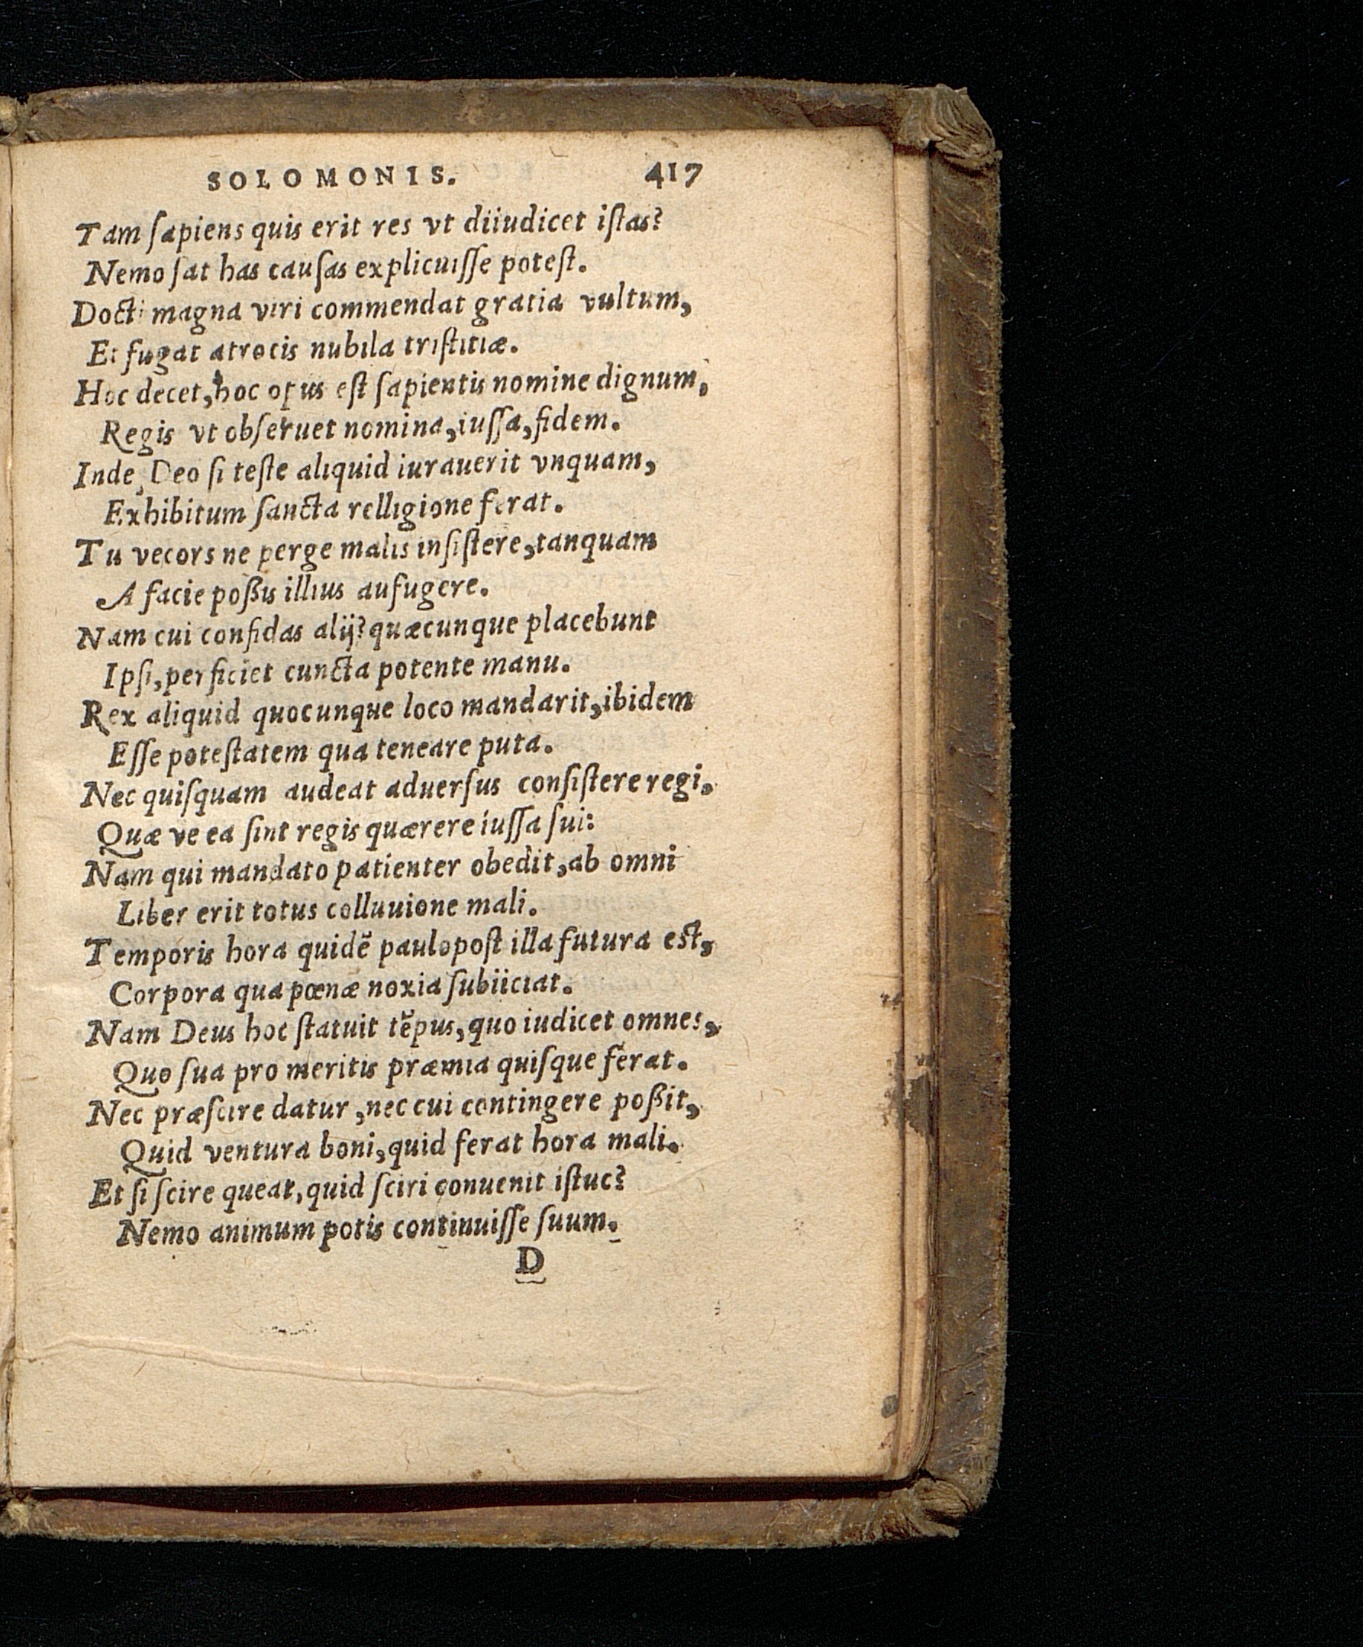 SOLOMONIS. 417
Tam ſapiens quis erit res vt diiudicet iſtas?
Nemo ſat has cauſas explicuiſſe poteſt.
Docti magna viri commendat gratia vultum,
Et fugat atrocis nubila triſtitiæ.
Hoc decet, hoc opus eſt ſapientis nomine dignum,
Regis vt obſeruet nomina, iuſſa, fidem.
Inde Deo ſi teſte aliquid iurauerit vnquam,
Exhibitum ſancta relligione ferat.
Tu vecors ne perge malis inſiſtere, tanquam
A facie poßis illius aufugere.
Nam cui confidas alij? quæcunque placebunt
Ipſi, perficiet cuncta potente manu.
Rex aliquid quocunque loco mandarit, ibidem
Eſſe poteſtatem qua teneare puta.
Nec quiſquam audeat aduerſus conſiſtere regi.
Quæ ve ea ſint regis quærere iuſſa ſui:
Nam qui mandato patienter obedit, ab omni
Liber erit totus colluuione mali.
Temporis hora quidē paulopoſt illa futura est,
Corpora qua pœnæ noxia ſubiiciat.
Nam Deus hoc ſtatuit tēpus, quo iudicet omnes,
Quo ſua pro meritis præmia quiſque ferat.
Nec præſcire datur, nec cui contingere poßit,
Quid ventura boni, quid ferat hora mali.
Et ſi ſcire queat, quid ſciri conuenit iſtuc?
Nemo animum potis continuiſſe ſuum.
D